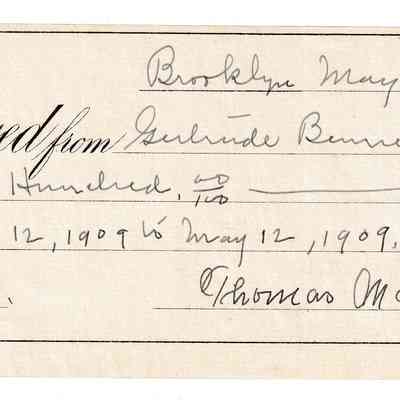 Brooklyn May
ed from Gertrude Benne
Hundred, 00/100
12, 1909 to May 12, 1909.
Thomas Mc